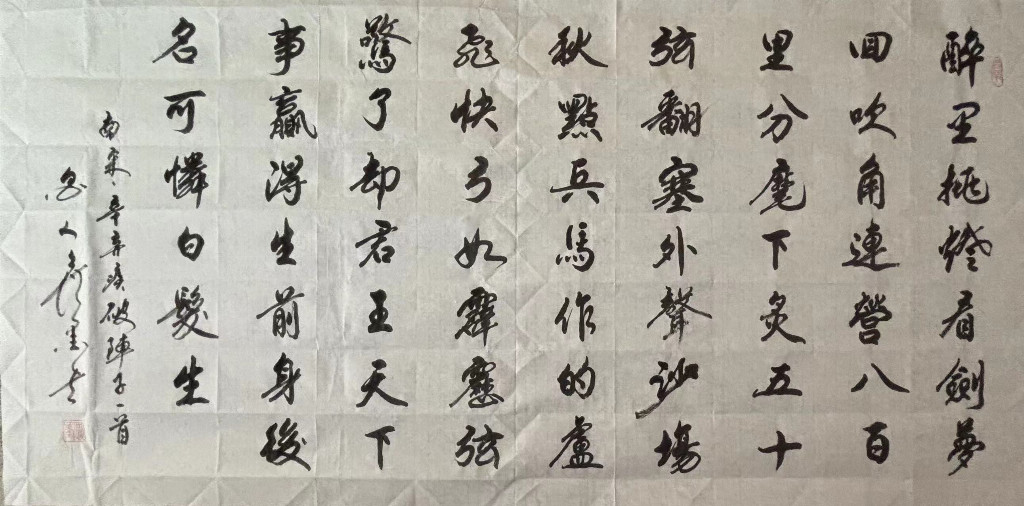 醉里挑燈看劍夢
回吹角連營八百
里分麾下炙五十
弦翻塞外聲沙場
秋點兵馬作的盧
飛快弓如霹靂弦
驚了却君王天下
事贏得生前身後
名可憐白髮生
南宋辛弃疾破陣子一首